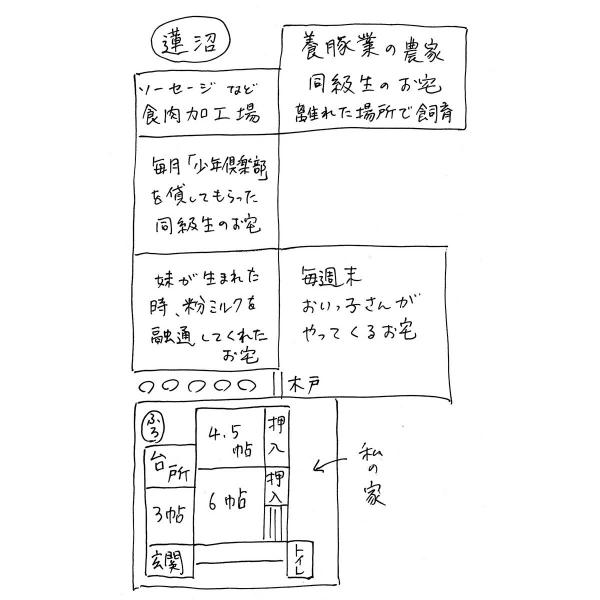 蓮沼
養豚業の農家
同級生のお宅
離れた場所で飼育
ソーセージなど
食肉加工場
毎月「少年倶楽部」
を貸してもらった
同級生のお宅
妹が生まれた
時、粉ミルクを
融通してくれた
お宅
毎週末
おいっ子さんが
やってくるお宅
木戸
ふろ
4.5
帖
押入
台所
6帖
押入
3帖
玄関
トイレ
私の家